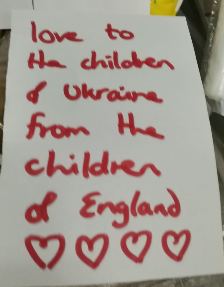 love to
the children
of Ukraine
from the
children
of England